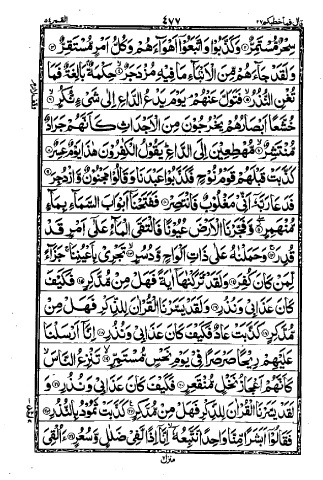 قال فما خطبكم ٢٧ ٤٧٧ القمر ٥٤
سِحْرٌ مُّسْتَمِرٌّ ۝ وَكَذَّبُوا وَاتَّبَعُوا أَهْوَاءَهُمْ وَكُلُّ أَمْرٍ مُّسْتَقِرٌّ ۝
وَلَقَدْ جَاءَهُم مِّنَ الْأَنۢبَاءِ مَا فِيهِ مُزْدَجَرٌ ۝ حِكْمَةٌ بَالِغَةٌ فَمَا
تُغْنِ النُّذُرُ ۝ فَتَوَلَّ عَنْهُمْ يَوْمَ يَدْعُ الدَّاعِ إِلَى شَيْءٍ نُّكُرٍ ۝
خُشَّعًا أَبْصَارُهُمْ يَخْرُجُونَ مِنَ الْأَجْدَاثِ كَأَنَّهُمْ جَرَادٌ
مُّنتَشِرٌ ۝ مُّهْطِعِينَ إِلَى الدَّاعِ يَقُولُ الْكٰفِرُونَ هٰذَا يَوْمٌ عَسِرٌ ۝
كَذَّبَتْ قَبْلَهُمْ قَوْمُ نُوحٍ فَكَذَّبُوا عَبْدَنَا وَقَالُوا مَجْنُونٌ وَّازْدُجِرَ ۝
فَدَعَا رَبَّهُ أَنِّي مَغْلُوبٌ فَانتَصِرْ ۝ فَفَتَحْنَا أَبْوَابَ السَّمَاءِ بِمَاءٍ
مُّنْهَمِرٍ ۝ وَّفَجَّرْنَا الْأَرْضَ عُيُونًا فَالْتَقَى الْمَاءُ عَلَى أَمْرٍ قَدْ
قُدِرَ ۝ وَحَمَلْنٰهُ عَلَى ذَاتِ أَلْوَاحٍ وَّدُسُرٍ ۝ تَجْرِي بِأَعْيُنِنَا جَزَاءً
لِّمَن كَانَ كُفِرَ ۝ وَلَقَد تَّرَكْنٰهَا آيَةً فَهَلْ مِن مُّدَّكِرٍ ۝ فَكَيْفَ
كَانَ عَذَابِي وَنُذُرِ ۝ وَلَقَدْ يَسَّرْنَا الْقُرْآنَ لِلذِّكْرِ فَهَلْ مِن
مُّدَّكِرٍ ۝ كَذَّبَتْ عَادٌ فَكَيْفَ كَانَ عَذَابِي وَنُذُرِ ۝ إِنَّا أَرْسَلْنَا
عَلَيْهِمْ رِيحًا صَرْصَرًا فِي يَوْمِ نَحْسٍ مُّسْتَمِرٍّ ۝ تَنزِعُ النَّاسَ
كَأَنَّهُمْ أَعْجَازُ نَخْلٍ مُّنقَعِرٍ ۝ فَكَيْفَ كَانَ عَذَابِي وَنُذُرِ ۝ وَ
لَقَدْ يَسَّرْنَا الْقُرْآنَ لِلذِّكْرِ فَهَلْ مِن مُّدَّكِرٍ ۝ كَذَّبَتْ ثَمُودُ بِالنُّذُرِ ۝
فَقَالُوا أَبَشَرًا مِّنَّا وَاحِدًا نَّتَّبِعُهُ إِنَّا إِذًا لَّفِي ضَلٰلٍ وَّسُعُرٍ ۝ أَؤُلْقِيَ
منزل